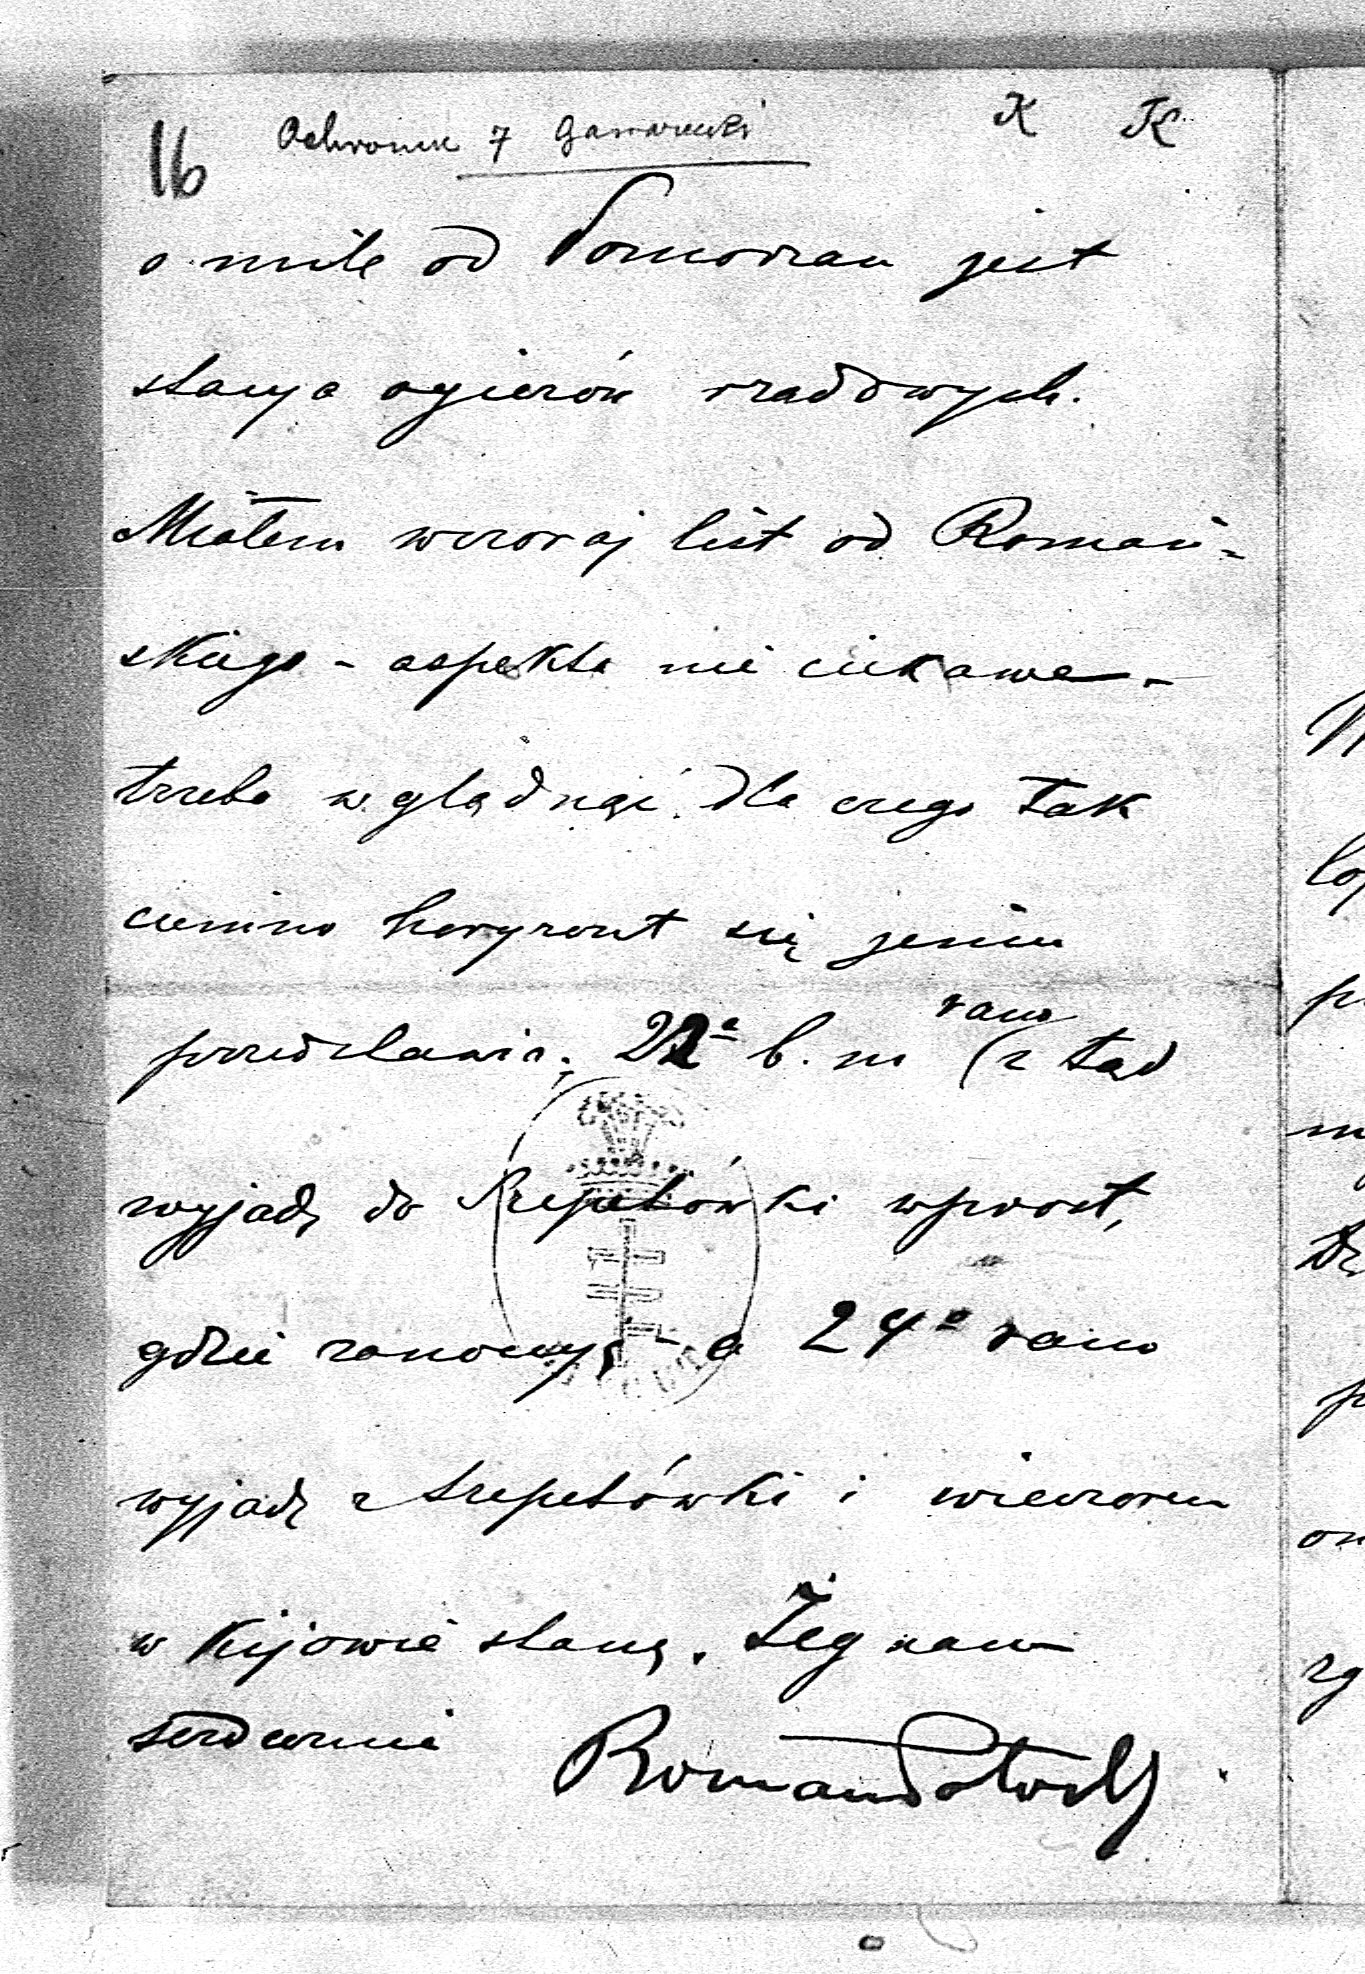 16 Ochronek 7 K K
o milę od Pomorzan jest
stacya ogierów rządowych.
Miałem wczoraj list od Romań-
skiego - aspekta nie ciekawe -
trzeba wglądnąć dla czego tak
ciemno horyzont się jemu
przedstawia. 22ª b. m (z tąd rano
wyjadę do Szepetówki wprost,
gdzie zanocuję - a 24º rano
wyjadę z Szepetówki i wieczorem
w Kijowie stanę. Żegnam
serdecznie Roman Potocki
W
lo
p
m
p
on
zg